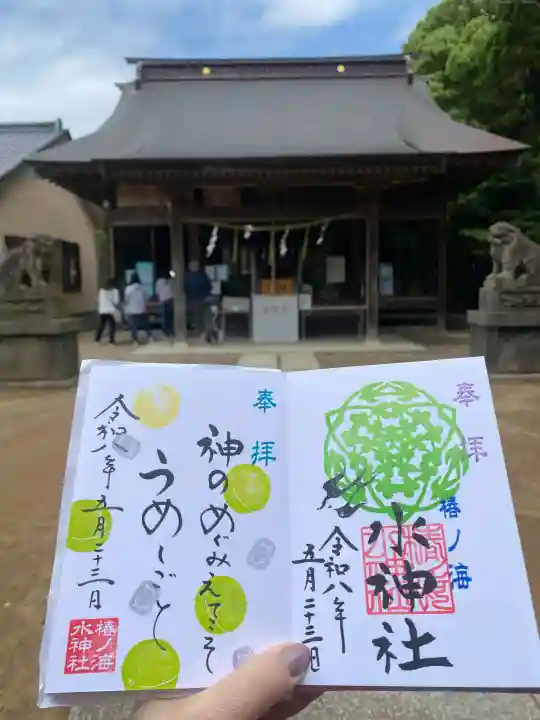 奉拝
椿ノ海
水神社
令和八年
五月二十三日
奉拝
神のめぐみえてこそ
うめしごと
令和八年五月二十三日
椿ノ海
水神社